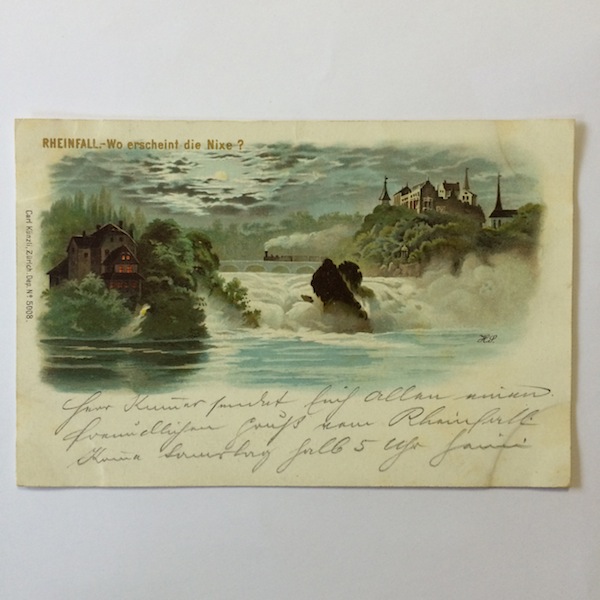 RHEINFALL.-Wo erscheint die Nixe?
Carl Künzli, Zürich. Dep. No 5008.
Herr sendet Euch Allen einen
freundlichen Gruß vom Rheinfall
Komme Samstag halb 5 Uhr